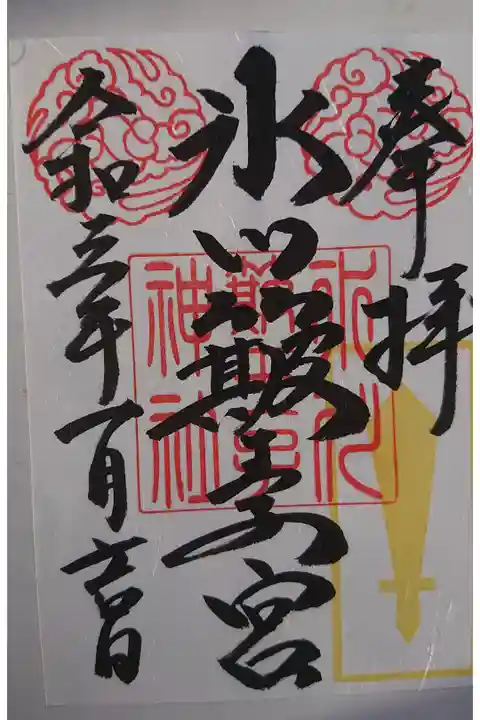 奉拝
氷川簸王子宮
令和三年一月吉日
氷川
神社